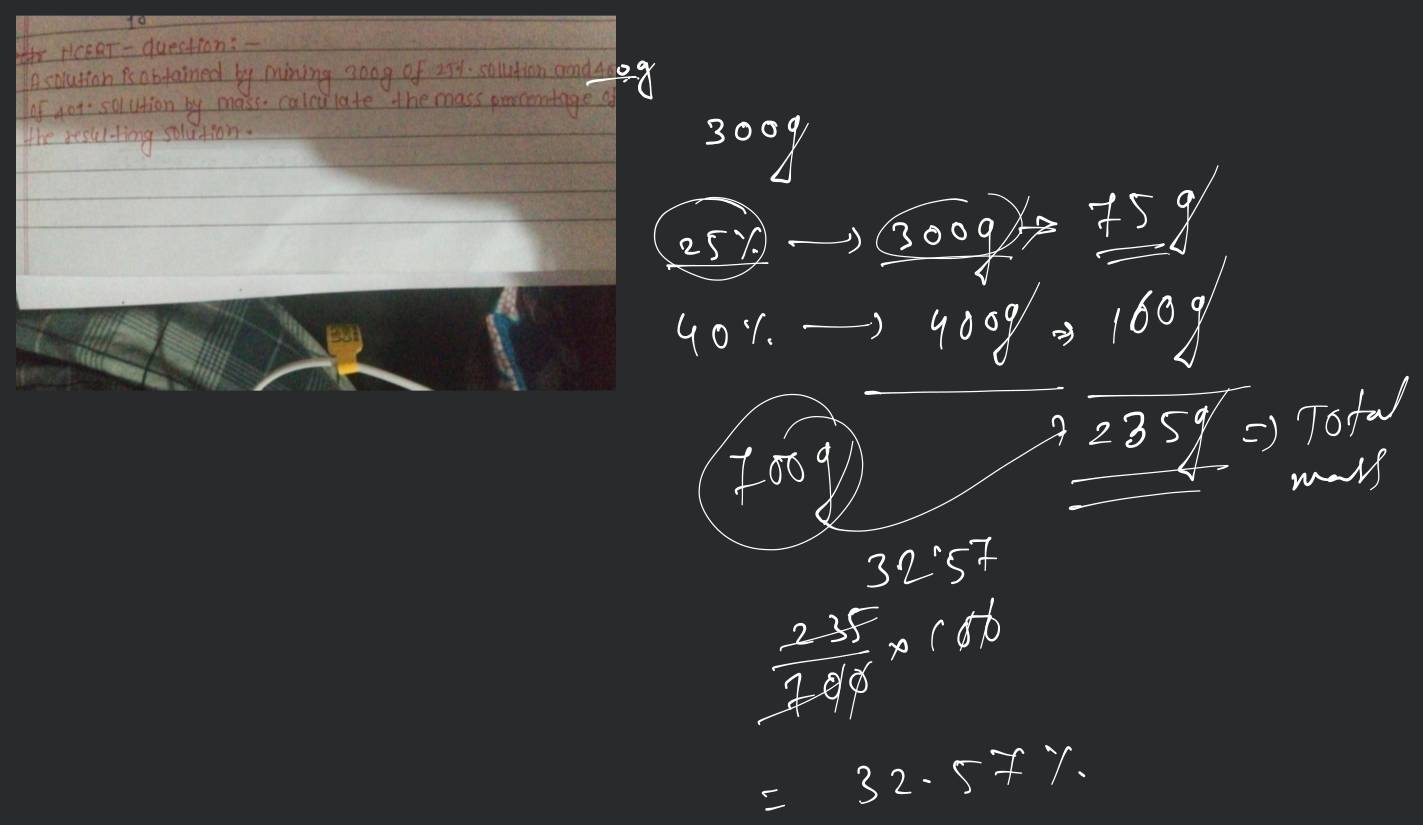 10
NCERT - question: -
A solution is obtained by mining 300g of 25% solution and 400g
of 40% solution by mass. calculate the mass percentage of
the resulting solution.
300g
25% → 300g → 75g
40% → 400g ⇒ 160g
700g 235g => Total
mass
32.57
235
700 × 100
= 32.57 %.